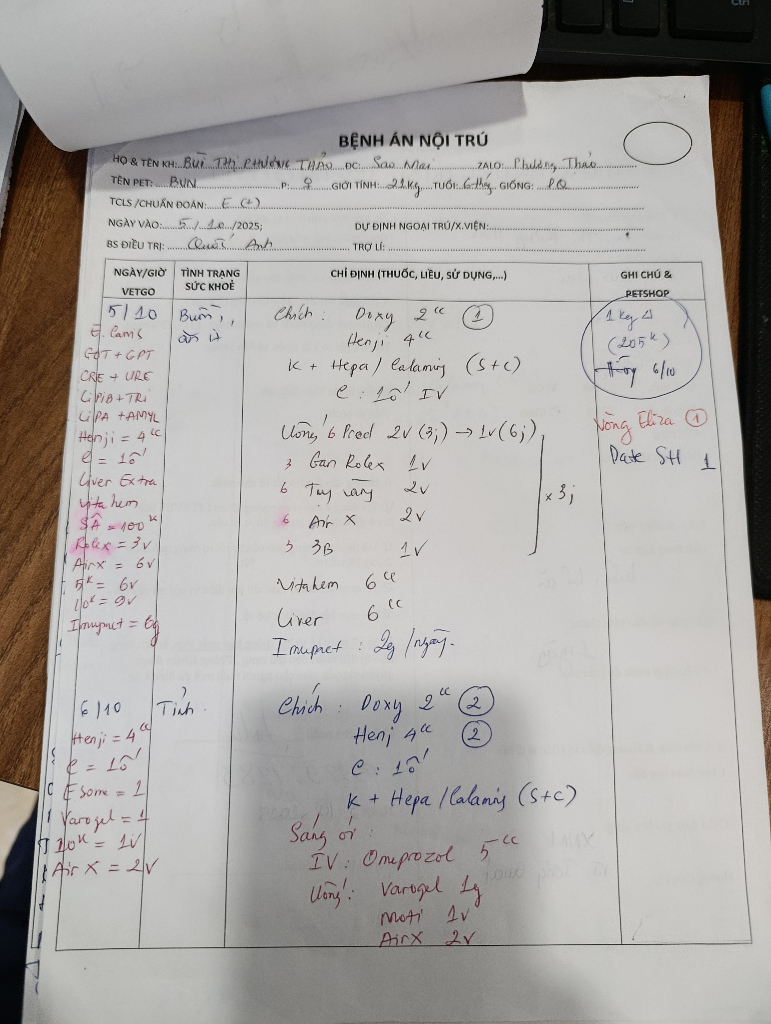 BỆNH ÁN NỘI TRÚ
HỌ & TÊN KH: BÙI THỊ PHƯƠNG THẢO ĐC: Sao Mai ZALO: Phương Thảo
TÊN PET: BUN P: ♀ GIỚI TÍNH: 21kg TUỔI: 6 thág GIỐNG: P.Q
TCLS /CHUẨN ĐOÁN: E (+)
NGÀY VÀO: 5/10/2025; DỰ ĐỊNH NGOẠI TRÚ/X.VIỆN:
BS ĐIỀU TRỊ: Quốc Anh TRỢ LÍ:
NGÀY/GIỜ VETGO
TÌNH TRẠNG SỨC KHOẺ
CHỈ ĐỊNH (THUỐC, LIỀU, SỬ DỤNG,...)
GHI CHÚ & PETSHOP
5/10
E. Cams
GOT + GPT
CRE + URE
LiPiD + TRi
LiPA + AMYL
Henji = 4cc
C = 1ô'
Liver Extra
Vitahem
SÂ = 100k
Rolex = 3v
Airx = 6v
5k = 6v
10k = 9v
Imupnet = 6g
Buồn,
ăn ít
Chích: Doxy 2cc ①
Henji 4cc
K + Hepa / Calamis (S+C)
C: 1ô' IV
Uống: 6 Pred 2v (3j) → 1v (6j)
3 Gan Rolex 1v
6 Tuy vàng 2v
6 Air X 2v
3 3B 1v
x 3j
Vitahem 6cc
Liver 6cc
Imupnet: 2g /ngày.
1 kg Δ
(205k)
6/10
Vòng Eliza ①
Date SH 1
6/10
Henji = 4cc
C = 1ô'
Esome = 1
Varogel = 1
10k = 1v
Air X = 2v
Tỉnh.
Chích: Doxy 2cc ②
Henj 4cc ②
C: 1ô'
K + Hepa / Calamis (S+C)
Sáng ói:
IV: Omeprozol 5cc
Uống: Varogel 1g
Moti 1v
AirX 2v